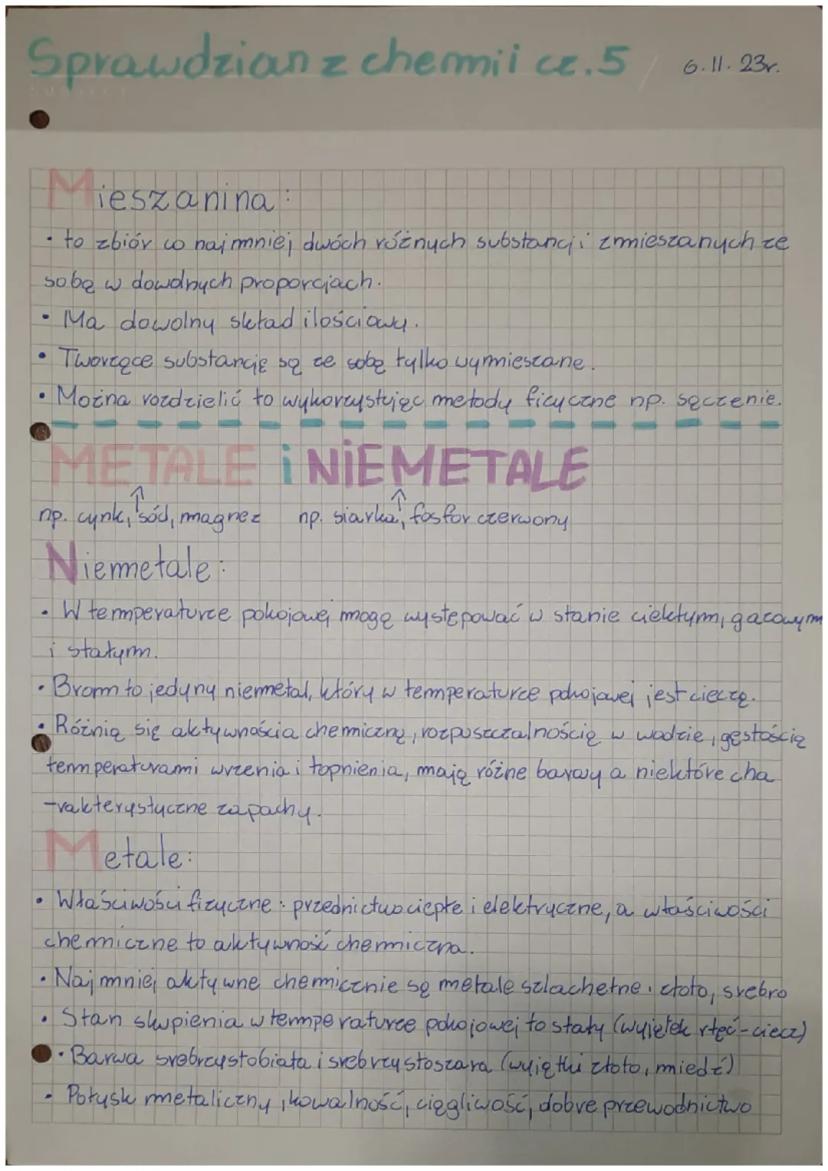 Sprawdzian z chemii cz.5 / 6.11.23r.
Mieszanina:
• to zbiór co najmniej dwóch różnych substancji zmieszanych ze
sobą w dowolnych proporcjach.
• Ma dowolny skład ilościowy.
• Tworzące substancję są ze sobą tylko wymieszane.
• Można rozdzielić to wykorzystując metody fizyczne np. sączenie.
METALE i NIEMETALE
np. cynk, sód, magnez np. siarka, fosfor czerwony
Niemetale:
• W temperaturze pokojowej mogą występować w stanie ciekłym, gazowym
i stałym.
• Brom to jedyny niemetal, który w temperaturze pokojowej jest cieczą.
• Różnią się aktywnościa chemiczną, rozpuszczalnością w wodzie, gęstością
temperaturami wrzenia i topnienia, mają różne barwy a niektóre cha
-rakterystyczne zapachy.
Metale:
• Właściwości fizyczne: przednictwo ciepłe i elektryczne, a właściwości
chemiczne to aktywność chemiczna.
• Najmniej aktywne chemicznie są metale szlachetne: złoto, srebro
• Stan skupienia w temperaturze pokojowej to stały (wyjątek rtęć-ciecz)
• Barwa srebrzystobiała i srebrzystoszara (wyjątki złoto, miedź)
• Połysk metaliczny, kowalność, ciągliwość, dobre przewodnictwo